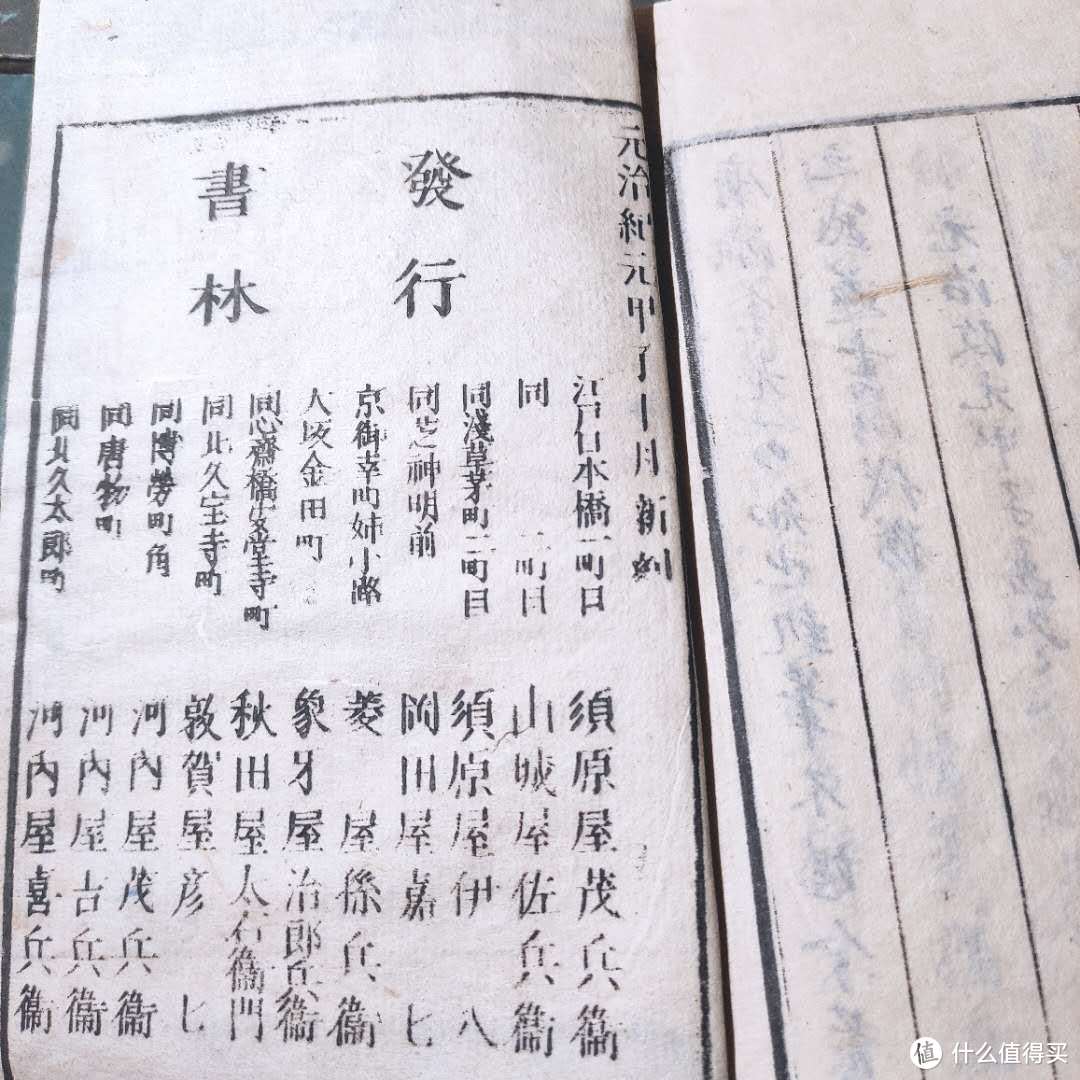 元治紀元甲子十月新刻
發行
書林
江戸日本橋一町目 須原屋茂兵衞
同 二町目 山城屋佐兵衞
同淺草茅町二町目 須原屋伊八
同芝神明前 岡田屋嘉七
京御幸町姉小路 菱屋孫兵衞
大坂金田町 象牙屋治郎兵衞
同心齋橋安堂寺町 秋田屋太右衞門
同北久宝寺町 敦賀屋彦七
同博勞町角 河内屋茂兵衞
同唐物町 河内屋吉兵衞
同北久太郎町 河内屋喜兵衞
值 什么值得买